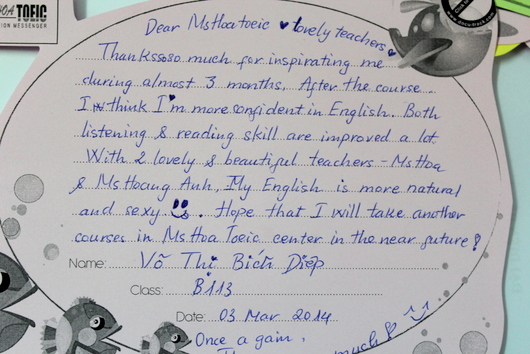 TOEIC
ION MESSENGER
Dear MsHoatoeic ♥ lovely teachers
Thankssoso much for inspirating me
during almost 3 months. After the course
I think I'm more confident in English. Both
listening & reading skill are improved a lot.
With 2 lovely & beautiful teachers - Ms Hoa
& Ms Hoang Anh, My English is more natural
and sexy. Hope that I will take another
courses in Ms Hoa Toeic center in the near future!
Name: Võ Thị Bích Diệp
Class: B113
Date: 03 Mar 2014
Once again,
much!